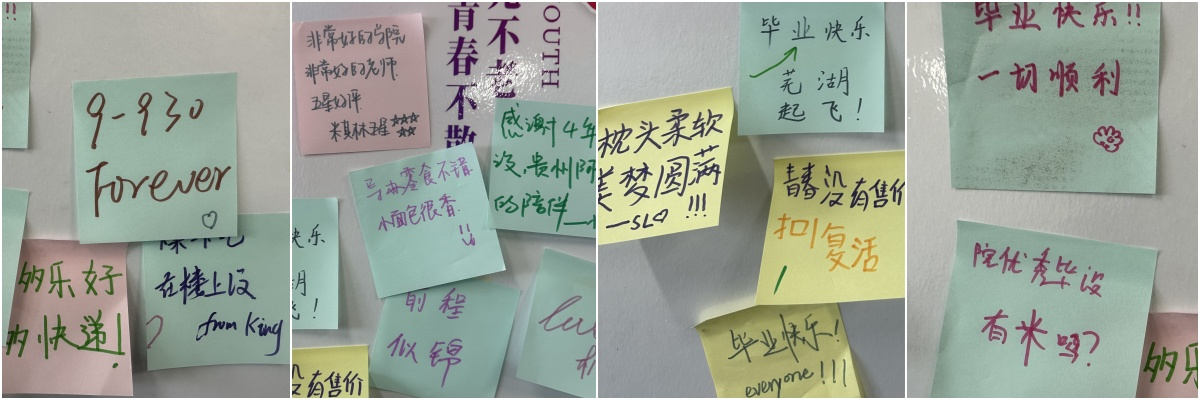 9-930
Forever
多乐好
多快递!
在楼上没
from King
非常好的学院
非常好的老师
五星好评
米其林五星
OUTH
青春不散
不老
感谢4年
没,贵州阿
的陪伴
导办零食不错
小面包很香
!!
快乐
前程
似锦
没有售价
毕业快乐
芜湖
起飞!
枕头柔软
美梦圆满
—SL !!!
青春没有售价
扣1复活
毕业快乐!
everyone!!!
毕业快乐!!
一切顺利
院优秀毕设
有米吗?
多乐